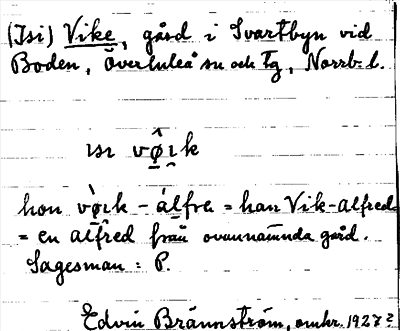 (Isi) Vike, gård i Svartbyn vid
Boden, Överluleå sn och tg, Norrb. l.
ısı vø̂ık
hon vø̀ık - álfre = han Vik-Alfred
= en Alfred från ovannämnda gård.
Sagesman: P.
Edvin Brännström, omkr. 1927?